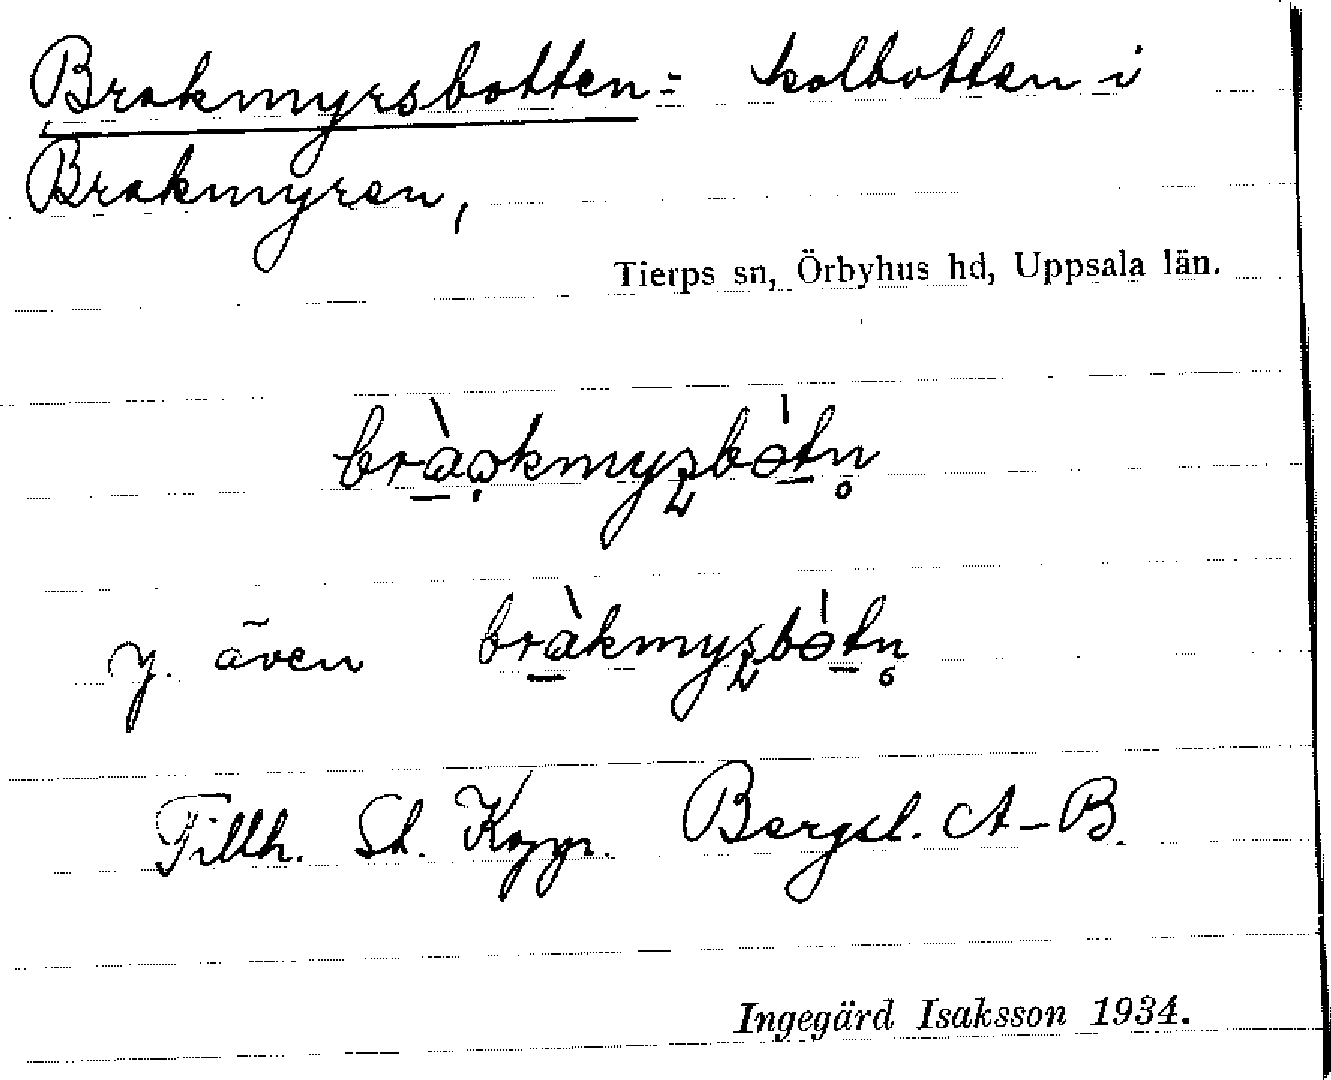 Brakmyrsbotten = kolbotten i
Brakmyren,
Tierps sn, Örbyhus hd, Uppsala län.
y. även
Tillh. St. Koppr. Bergsl. A-B.
Ingegärd Isaksson 1934.